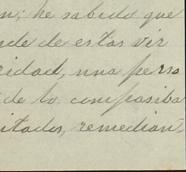 n; he sabido que
nde de estas vir
ridad, una perso
de lo compasiba
itados, remedian